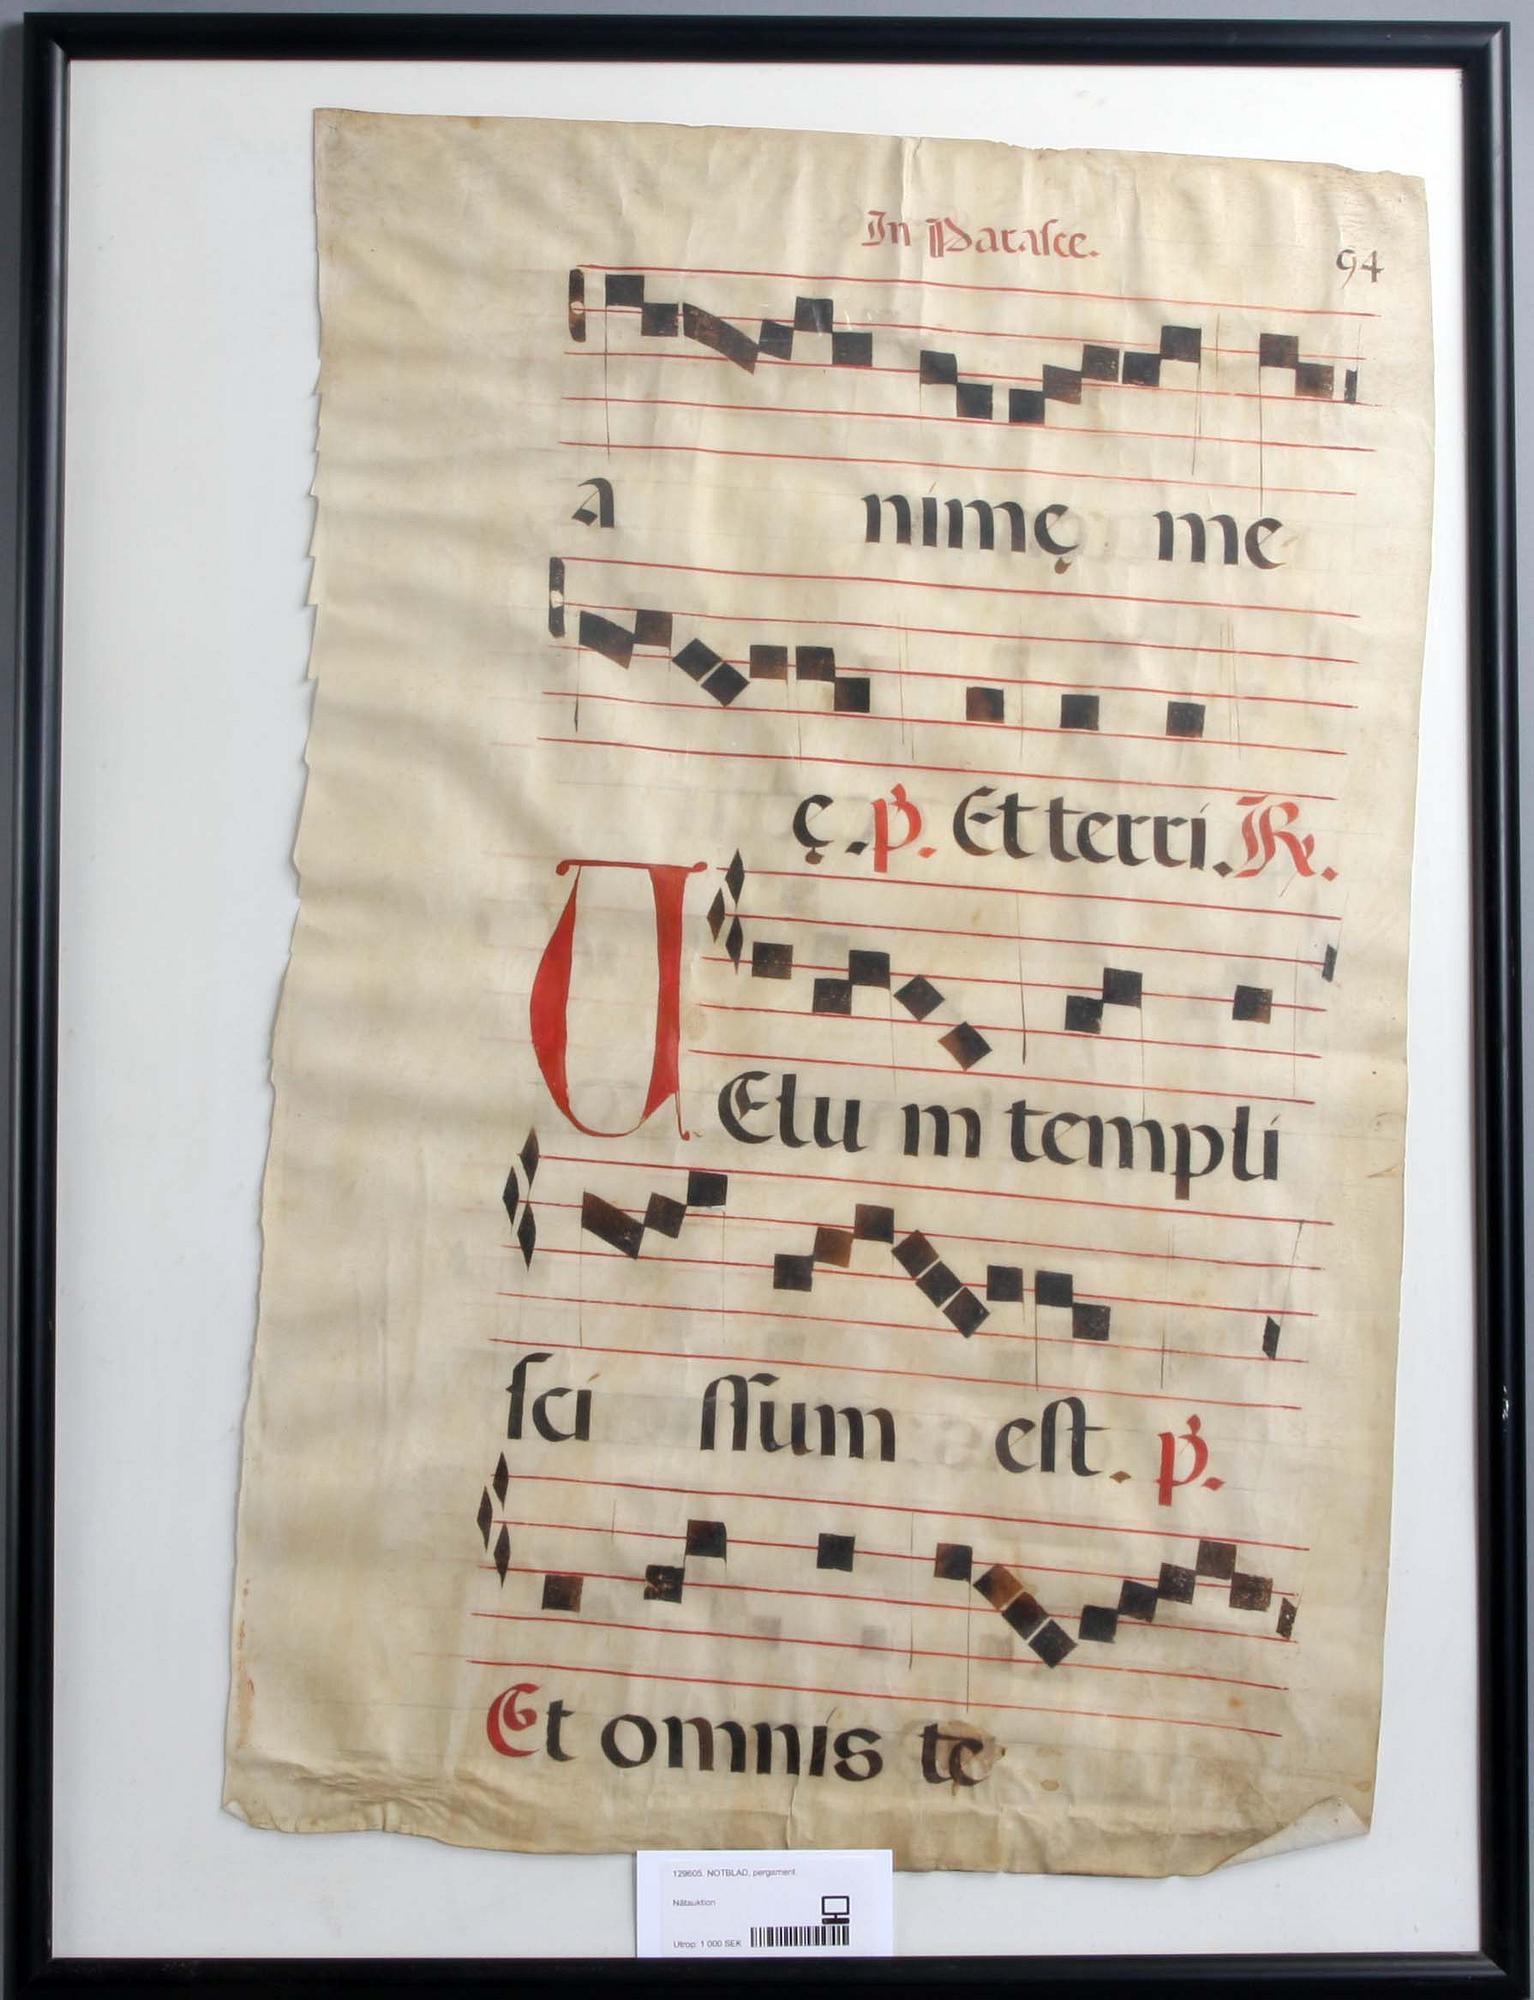 In Parasce.
94
a nimę me
ę. p. Et terri. R.
VElu m templi
sci ssum est. p.
Et omnis te
129605. NOTBLAD, pergament
Nätauktion
Utrop: 1 000 SEK